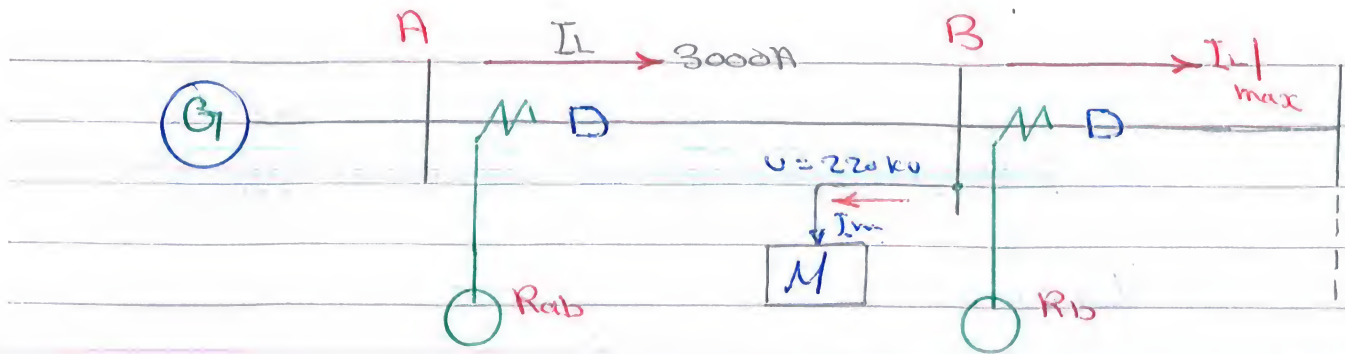 A IL 3000A B IL|max
G
U=220kV
Im
M
Rab Rb